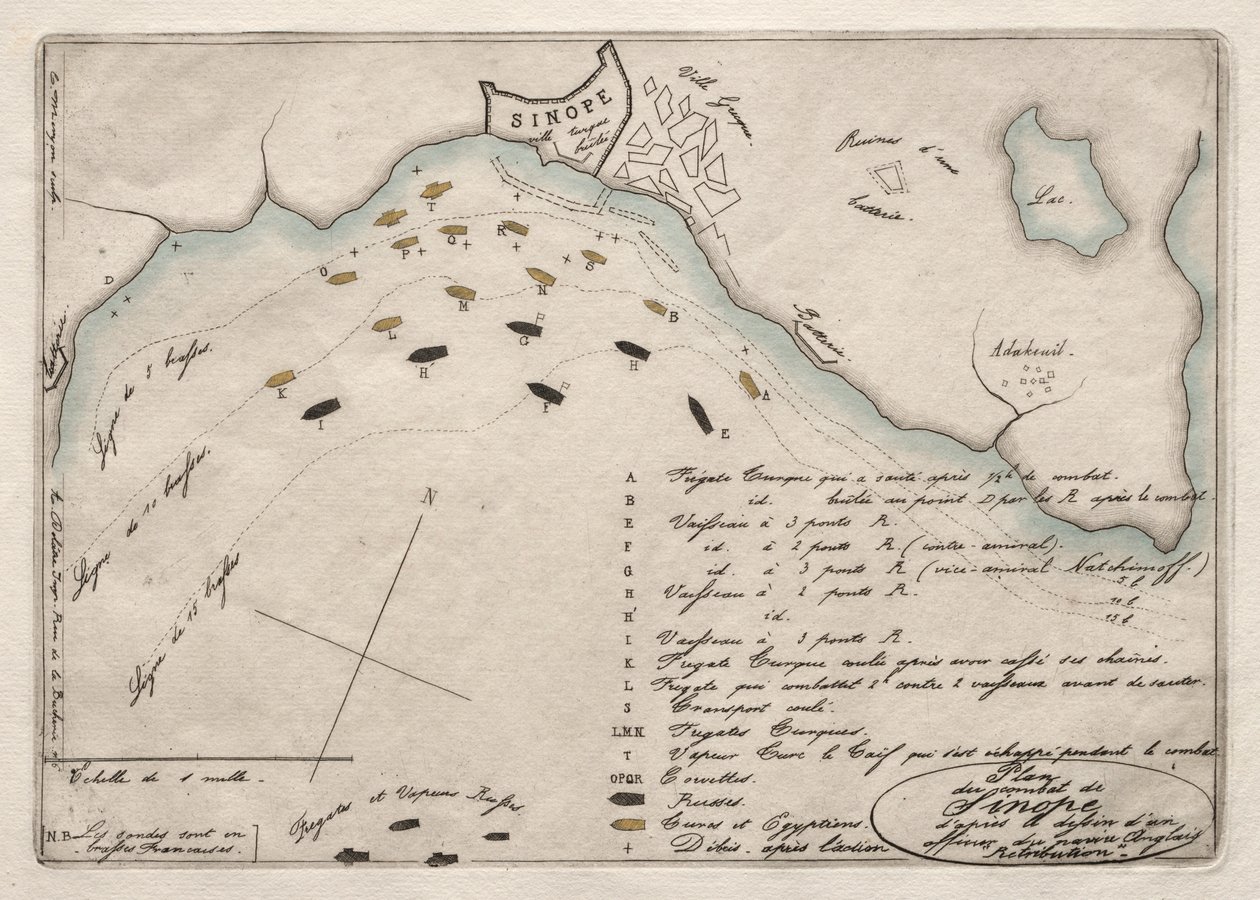 C. Meryon sculp.
SINOPE
ville turque
brulée
Ville Grecque.
Ruines d'une
batterie.
Lac.
T
O
P
Q
R
S
D
M
N
B
L
G
H'
H
Batterie
Adakeuil.
Batterie
K
I
F
A
E
Ligne de 5 brasses.
Ligne de 10 brasses.
Ligne de 15 brasses
N
A Frégate Turque qui a sauté après 1/2h de combat.
B id. brulée au point D par les R après le combat.
E Vaisseau à 3 ponts R.
F id. à 2 ponts R. (contre-amiral).
G id. à 3 ponts R (vice-amiral Natchimoff.)
H Vaisseau à 2 ponts R.
H' id.
I Vaisseau à 3 ponts R.
K Fregate Turque coulée après avoir cassé ses chaînes.
L Fregate qui combattet 2h contre 2 vaisseaux avant de sauter.
S Transport coulé.
LMN Fregates Turques.
T Vapeur Turc le Taïf qui s'est échappé pendant le combat
OPQR Corvettes.
Russes.
Turcs et Egyptiens.
+ Débris après l'action
5 b
10 b
15 b
Rue de la Bucherie, n° 6
Echelle de 1 mille.
Fregates et Vapeurs Russes
N.B. Les sondes sont en
brasses Francaises.
Plan
du combat de
Sinope
d'après le dessin d'un
officier du navire Anglais
"Retribution"